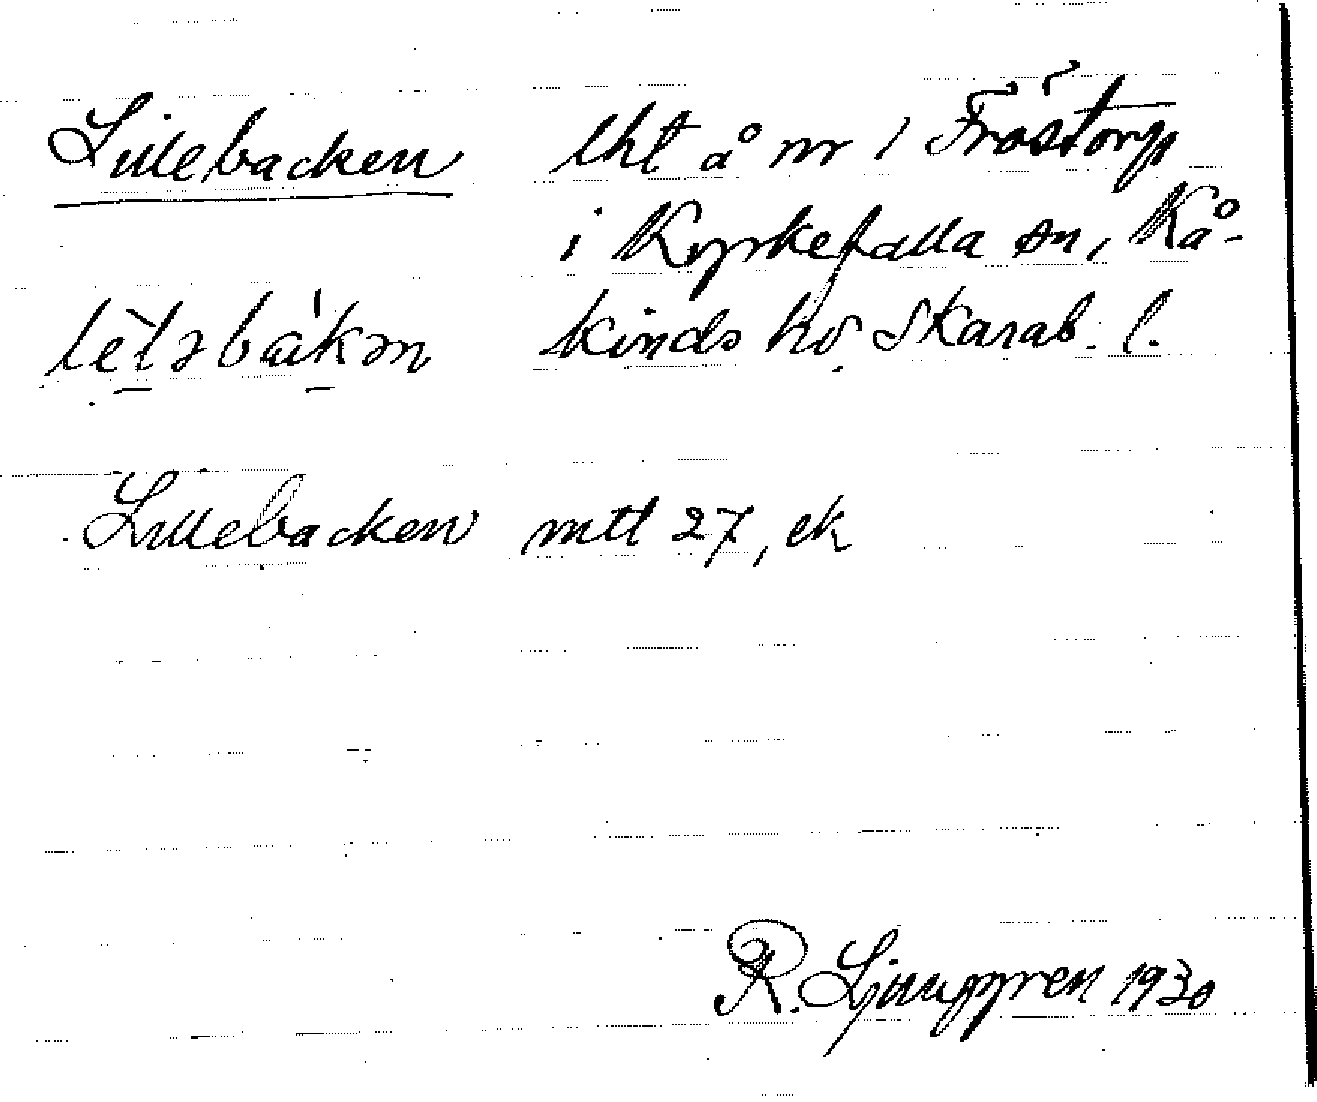 Lillebacken lht å nr 1 Fröstorp
i Kyrkefalla sn, Kå-
kinds hd Skarab. l.
Lillebacken mtl 27, ek
R. Ljunggren 1930